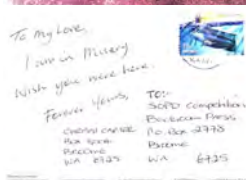 To my Love,
I am in Misery
Wish you were here.
Forever Yours,
Box
Broome
WA 6725
TO:-
SOPD Competition
Backroom Press
P.O. Box 2778
Broome
WA 6725